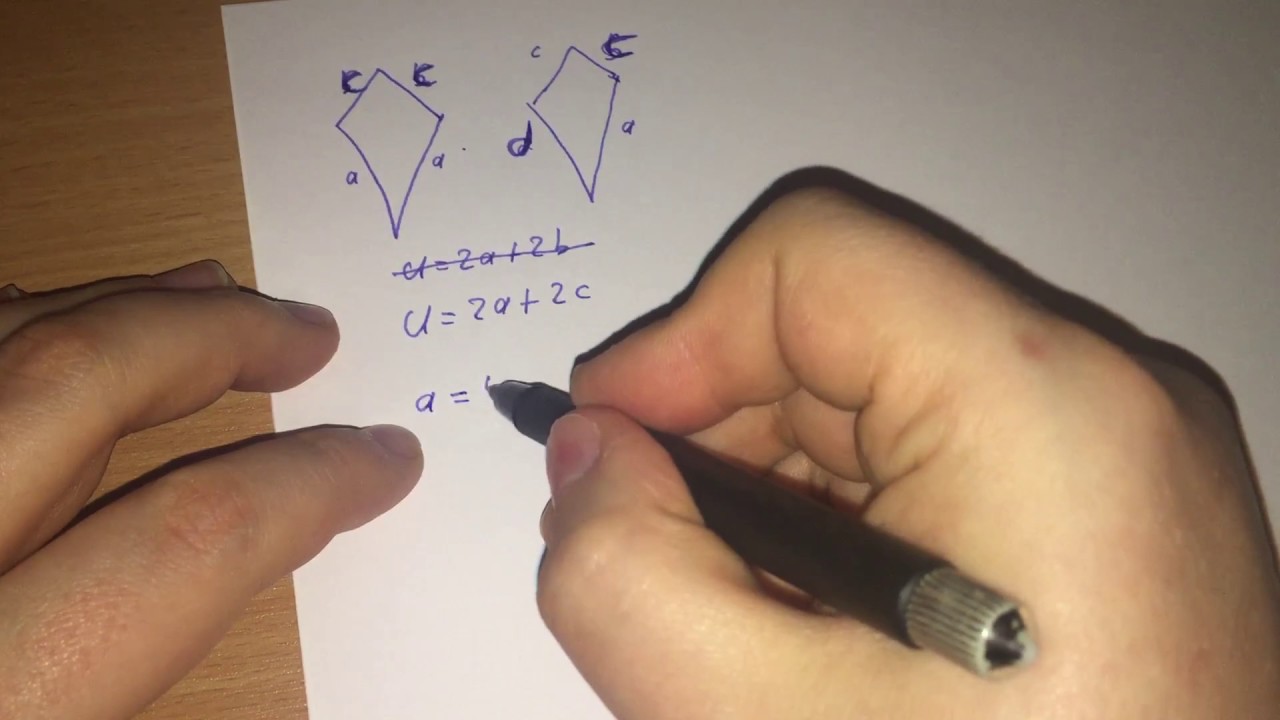 c c c c
a a d a
U = 2a + 2b
U = 2a + 2c
a =